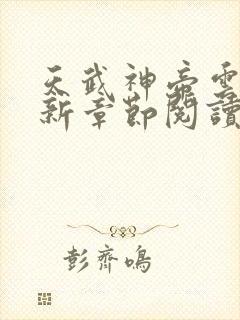 天武神帝雲
新章節閱讀
彭齊鳴